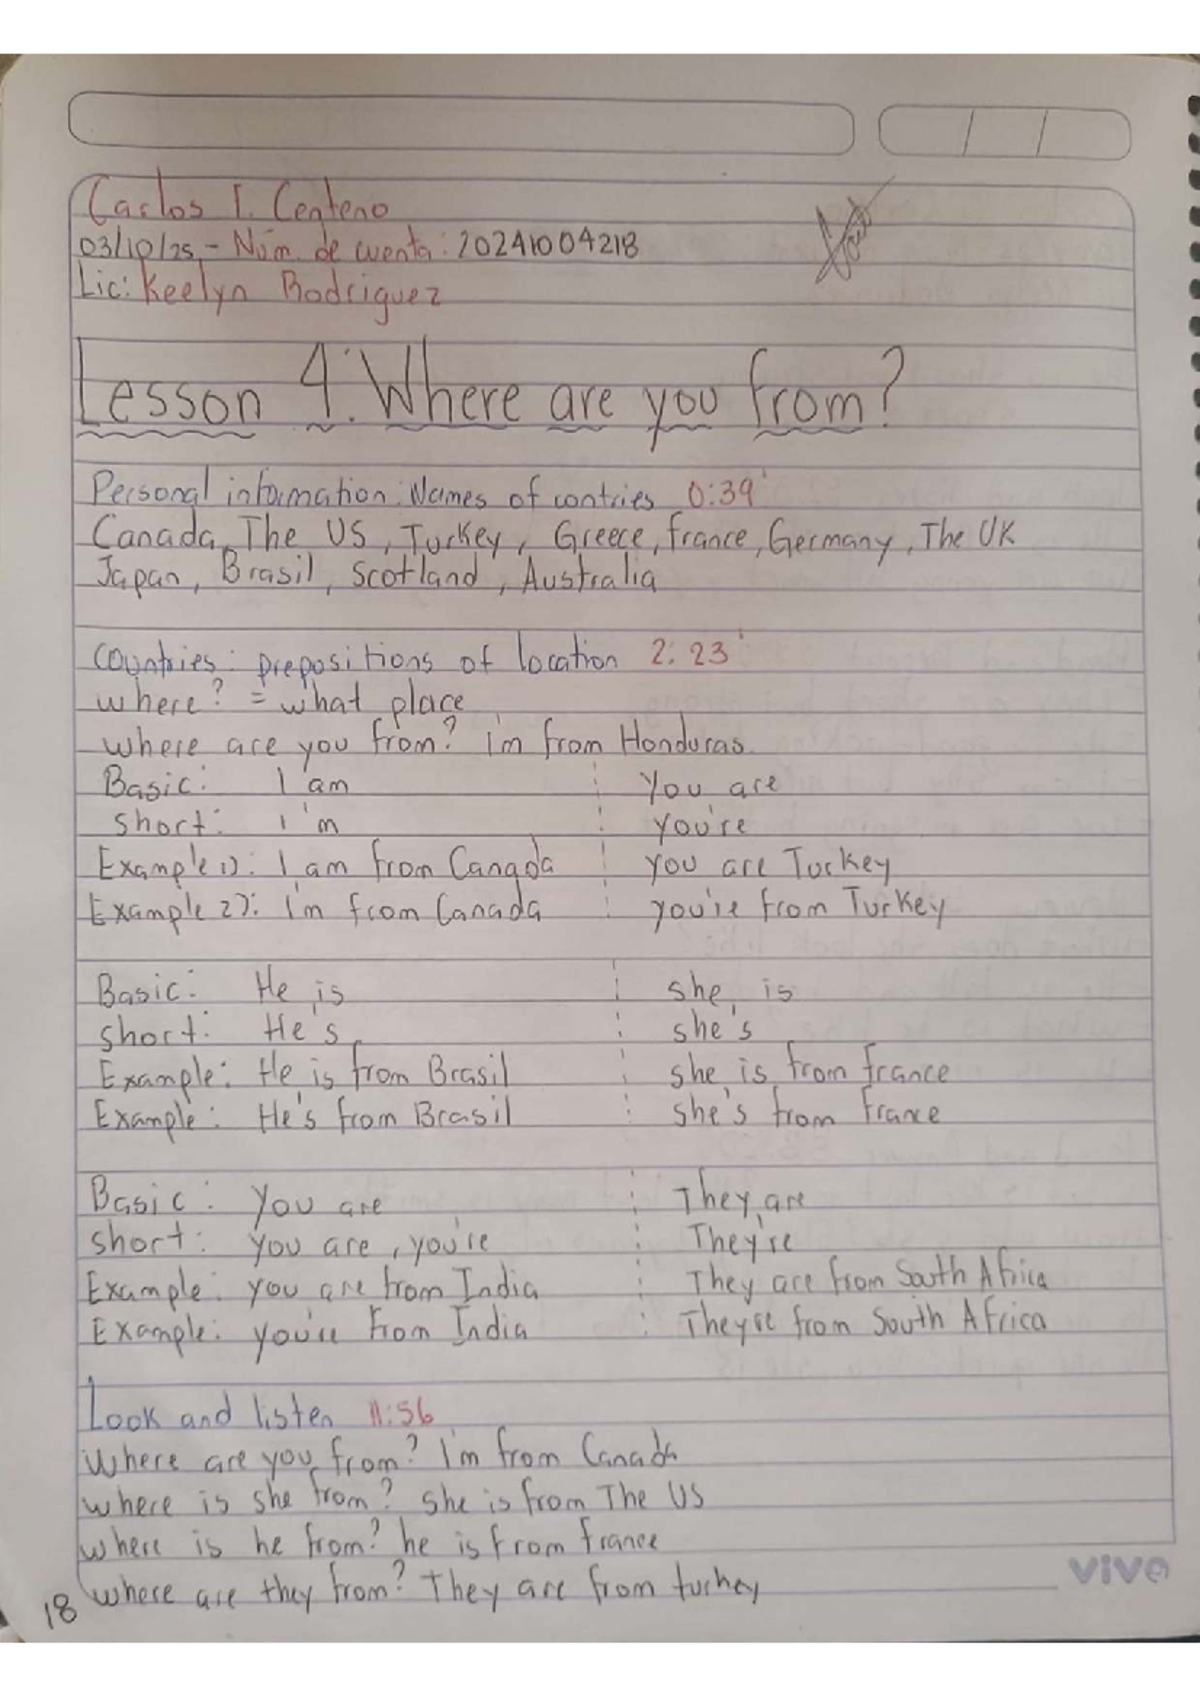 Carlos I. Centeno
03/10/25 - Núm. de cuenta: 20241004218
Lic: Keelyn Rodriguez
Lesson 4: Where are you from?
Personal information: Names of contries 0:39'
Canada, The US, Turkey, Greece, france, Germany, The UK
Japan, Brasil, Scotland, Australia
Countries: prepositions of location 2:23'
where? = what place
where are you from? I'm from Honduras.
Basic: I am You are
short: I'm you're
Example 1): I am from Canada you are Turkey
Example 2): I'm from Canada you're from Turkey
Basic: He is she is
short: He's she's
Example: He is from Brasil she is from france
Example: He's from Brasil she's from France
Basic: You are They are
short: you are, you're They're
Example: you are from India They are from South Africa
Example: you're from India They're from South Africa
Look and listen 11:56
Where are you from? I'm from Canada
where is she from? She is from The US
where is he from? he is from france
where are they from? They are from turkey
18
vivo